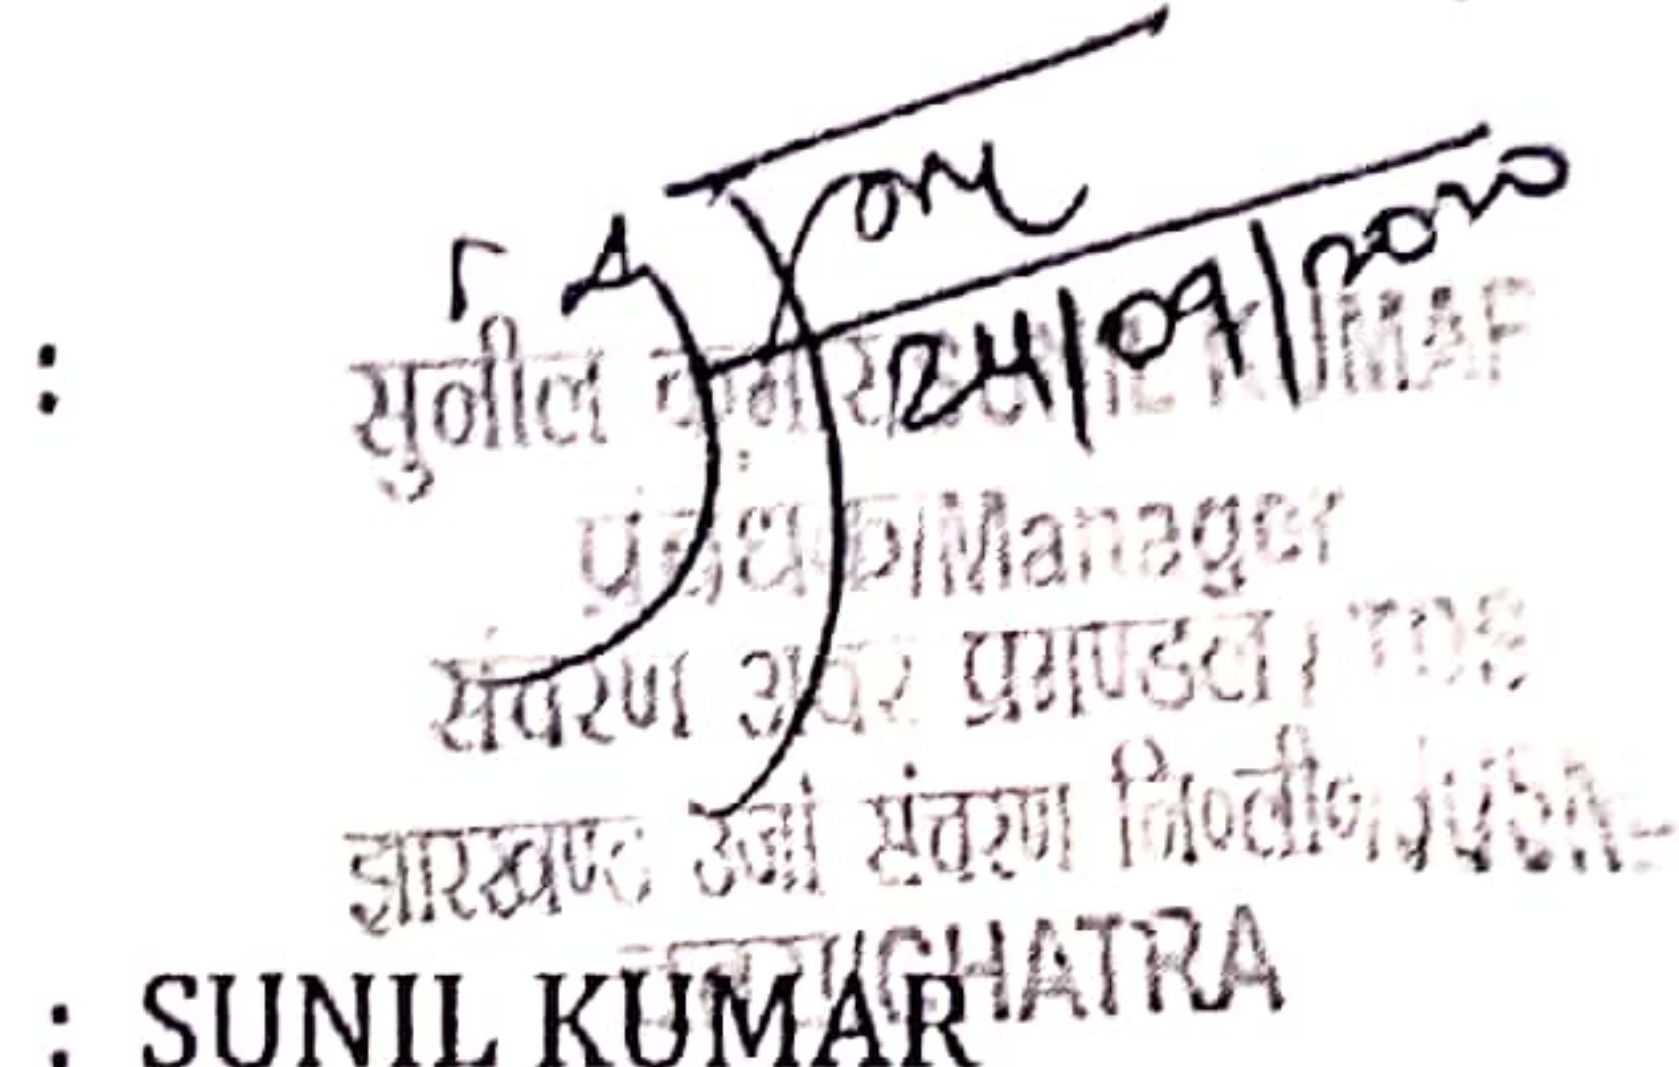 24/09/2020
:
सुनील कुमार/SUNIL KUMAR
प्रबंधक/Manager
संचरण अवर प्रमण्डल/
झारखण्ड उर्जा संचरण नि०ली०/JUSNL
चतरा/CHATRA
: SUNIL KUMAR